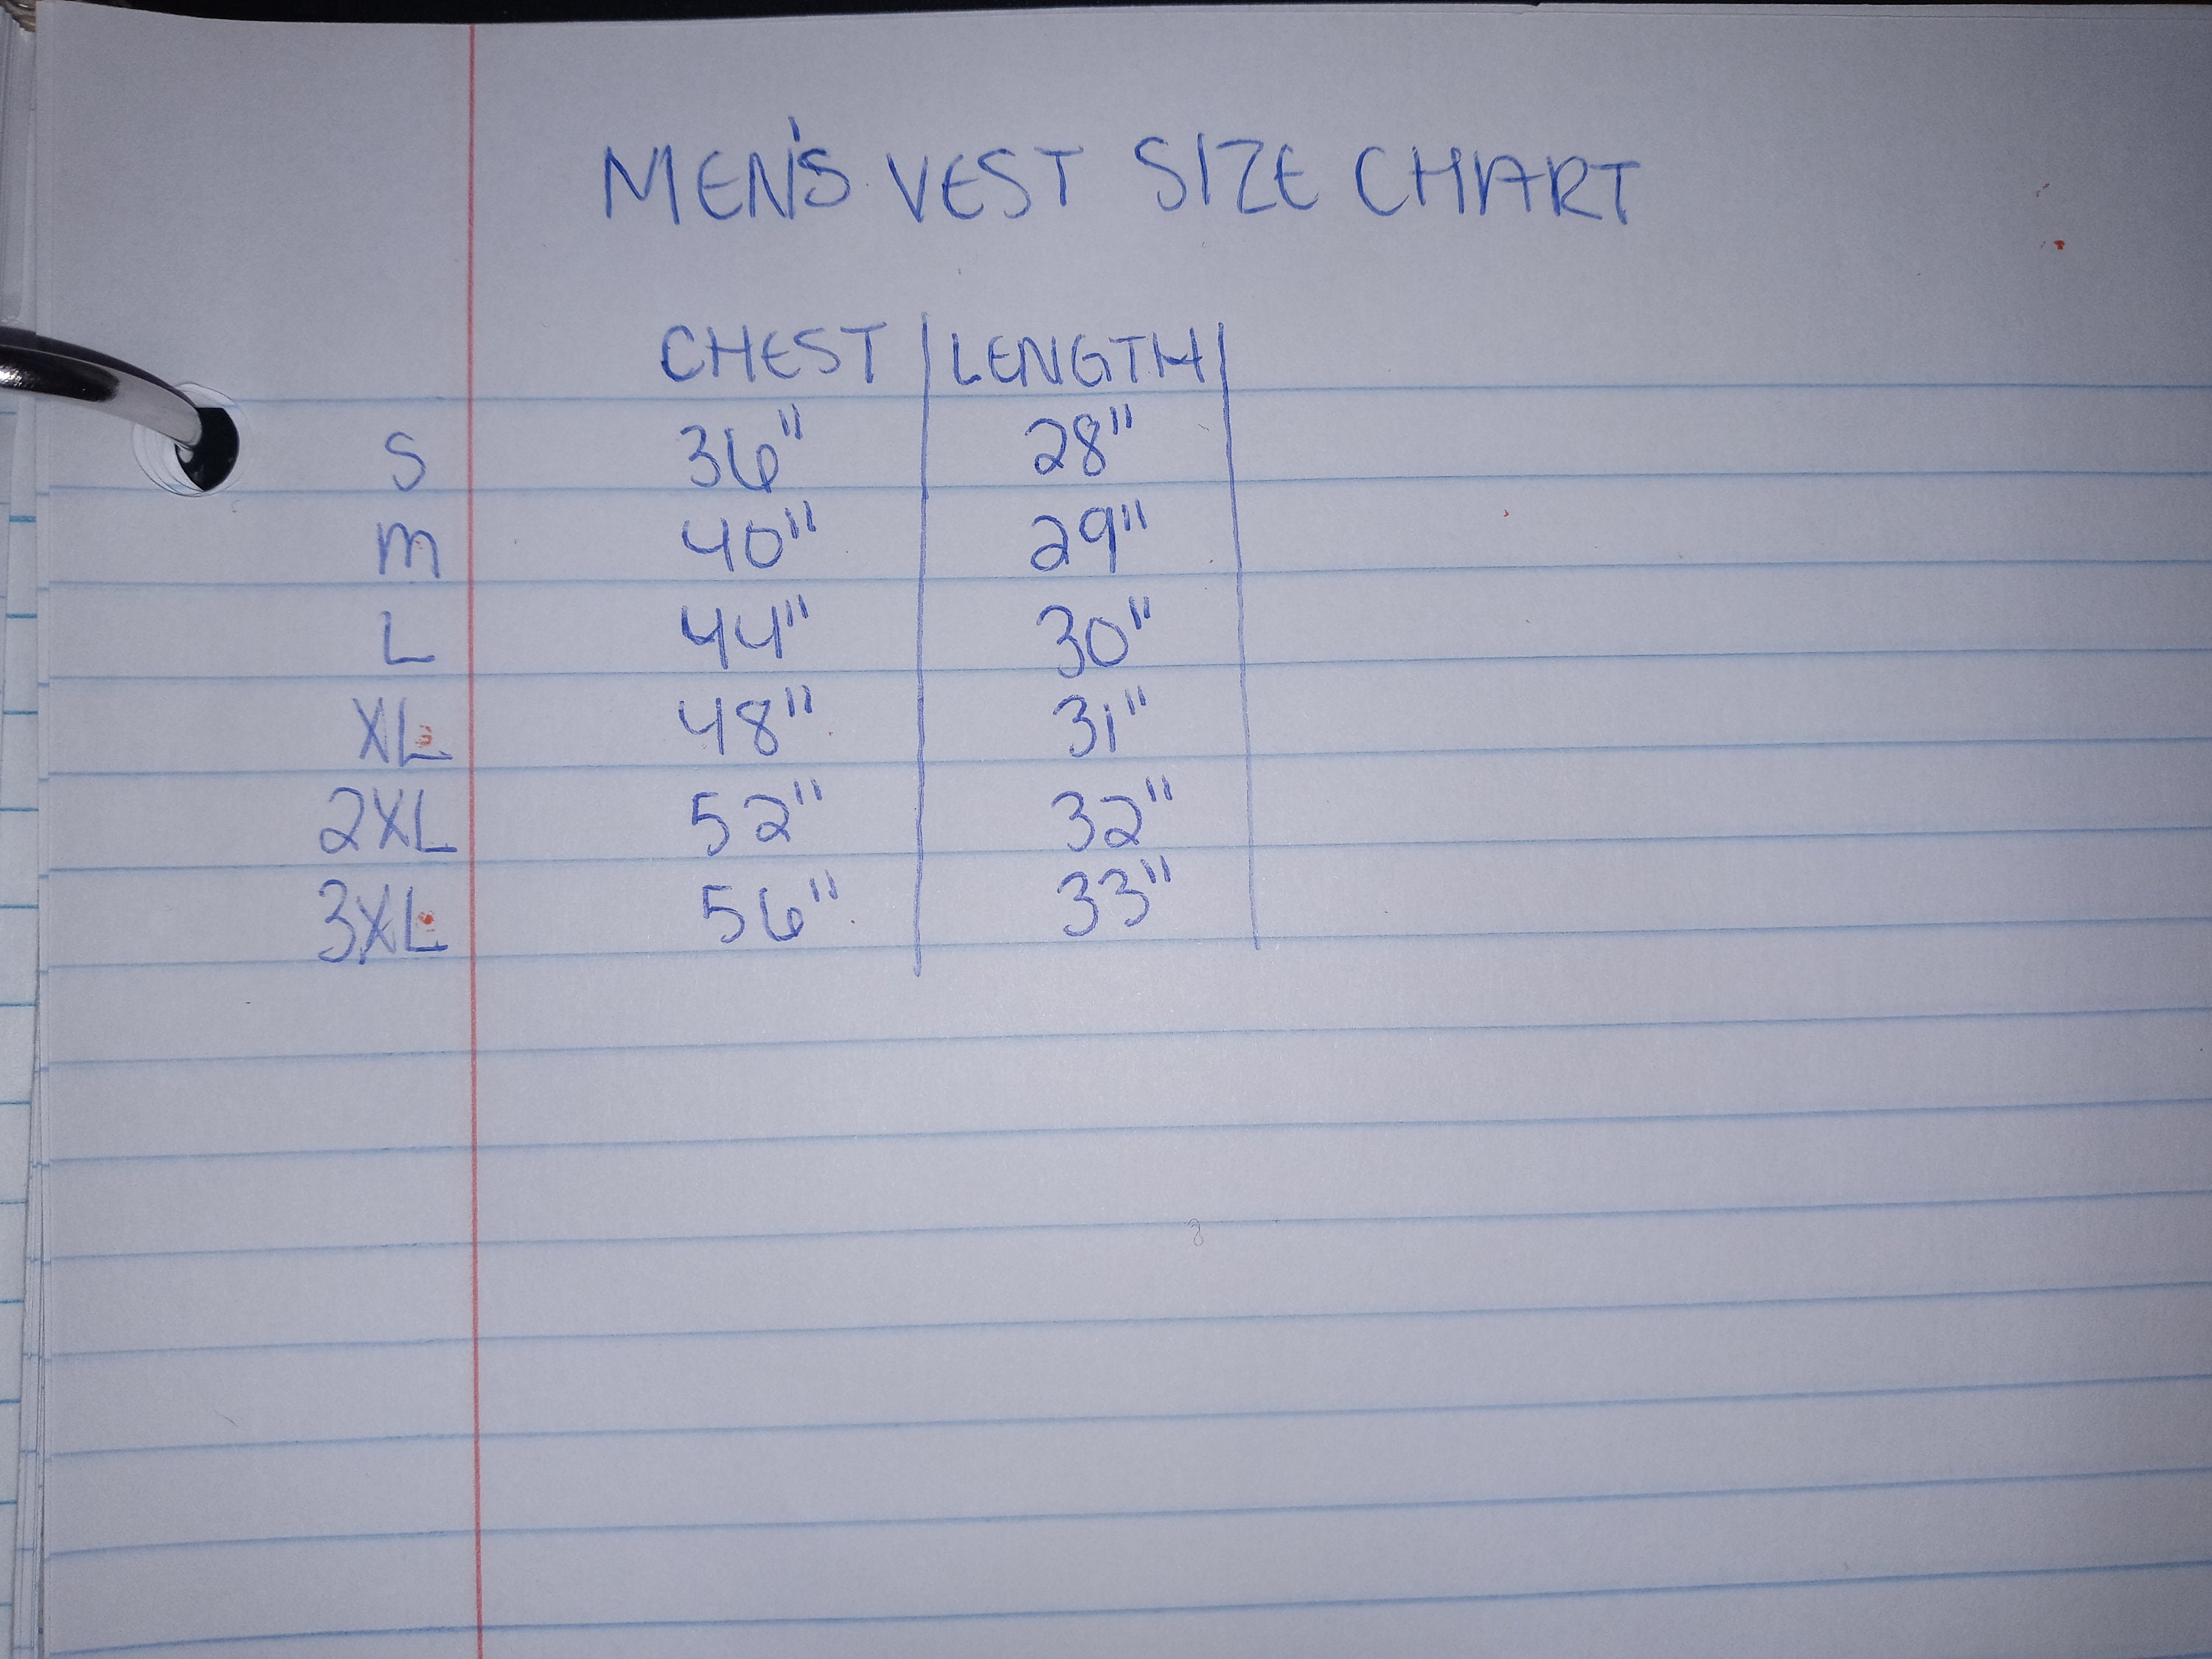 MEN'S VEST SIZE CHART
CHEST LENGTH
S 36" 28"
M 40" 29"
L 44" 30"
XL 48" 31"
2XL 52" 32"
3XL 56" 33"